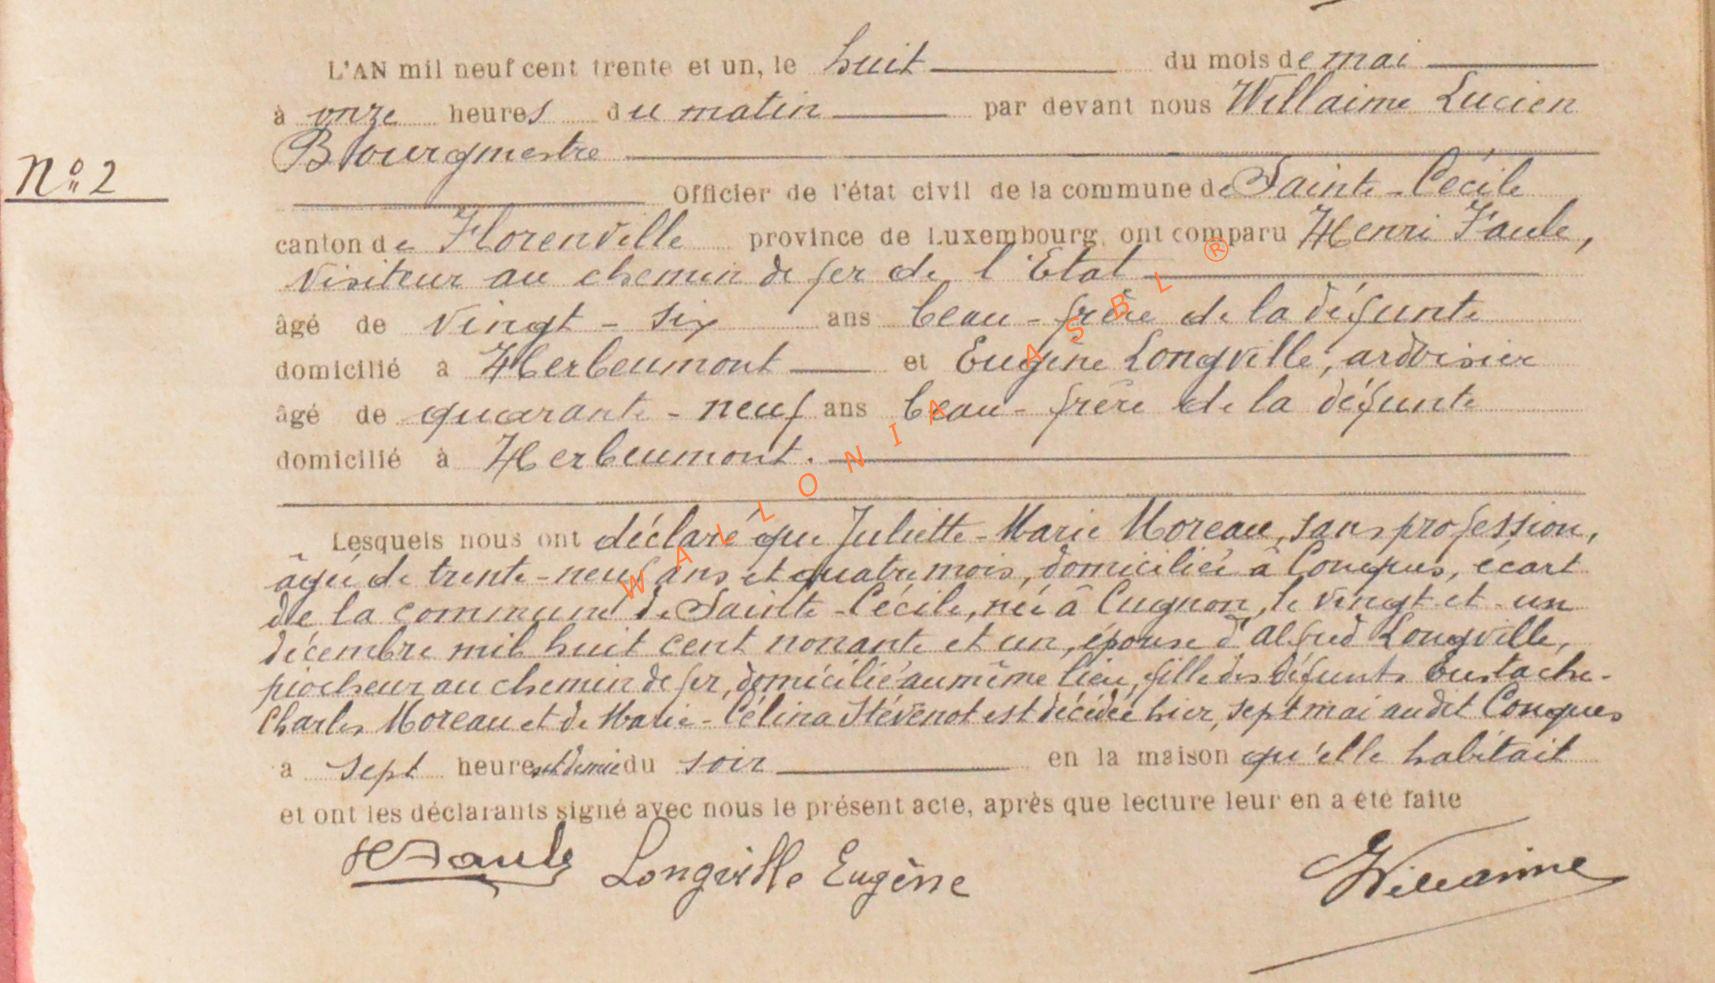 L'AN mil neuf cent trente et un, le huit du mois de mai
à onze heures du matin par devant nous Willaime Lucien
Bourgmestre
N° 2
Officier de l'état civil de la commune de Sainte-Cécile
canton de Florenville province de Luxembourg, ont comparu Henri Faule,
visiteur au chemin de fer de l'Etat
âgé de vingt-six ans beau-frère de la défunte
domicilié à Herbeumont et Eugène Longville, ardoisier
âgé de quarante-neuf ans beau-frère de la défunte
domicilié à Herbeumont.
Lesquels nous ont déclaré que Juliette-Marie Moreau, sans profession,
âgée de trente-neuf ans et quatre mois, domiciliée à Conques, écart
de la commune de Sainte-Cécile, née à Cugnon, le vingt et un
décembre mil huit cent nonante et un, épouse d'Alfred Longville,
piocheur au chemin de fer, domicilié au même lieu, fille des défunts Eustache-
Charles Moreau et de Marie-Célina Stévenot est décédée hier, sept mai audit Conques
a sept heures et demie du soir en la maison qu'elle habitait
et ont les déclarants signé avec nous le présent acte, après que lecture leur en a été faite
HFaule Longville Eugène Willaime
WALLONIA ASBL ®